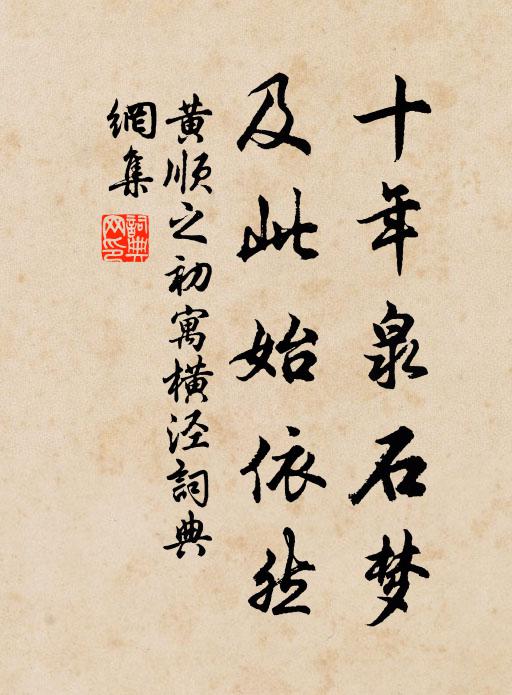 十年泉石梦
及此始依然
黄顺之初寓横泾詞典
網集
詞典
网印